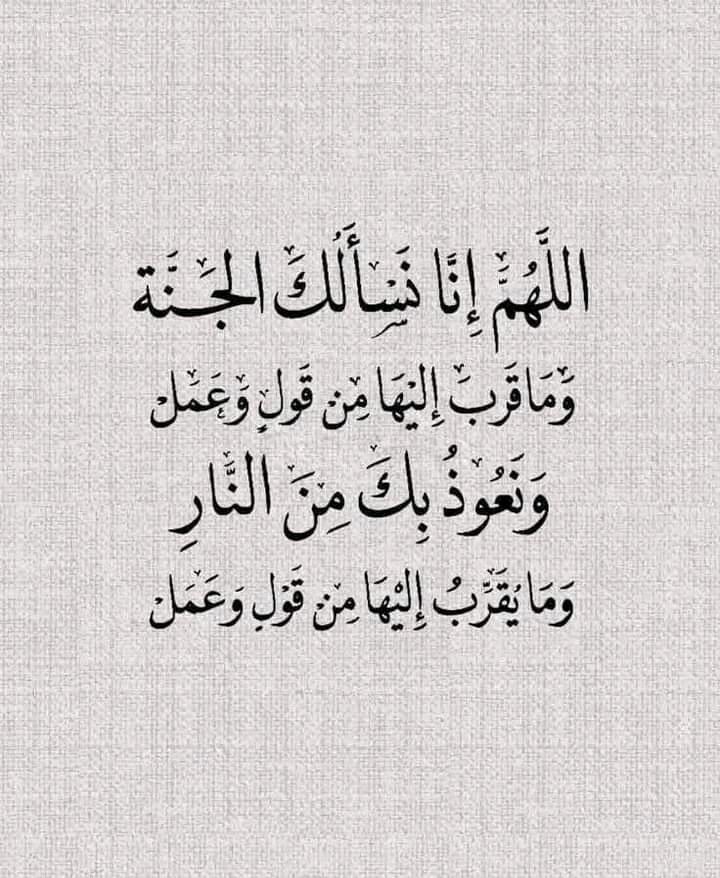 اللَّهُمَّ إِنَّا نَسْأَلُكَ الجَنَّة
وَمَا قَرَبَ إِلَيْهَا مِنْ قَولٍ وَعَمَلْ
وَنَعُوذُ بِكَ مِنَ النَّارِ
وَمَا يُقَرِّبُ إِلَيْهَا مِنْ قَوْلٍ وَعَمَلْ